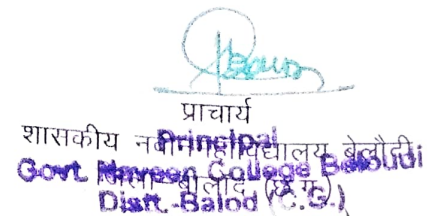 प्राचार्य
शासकीय नवीन महाविद्यालय बेलौदी
Principal
जिला-बालोद (छ.ग.)
Govt. Naveen College Beloudi
Distt.-Balod (C.G.)